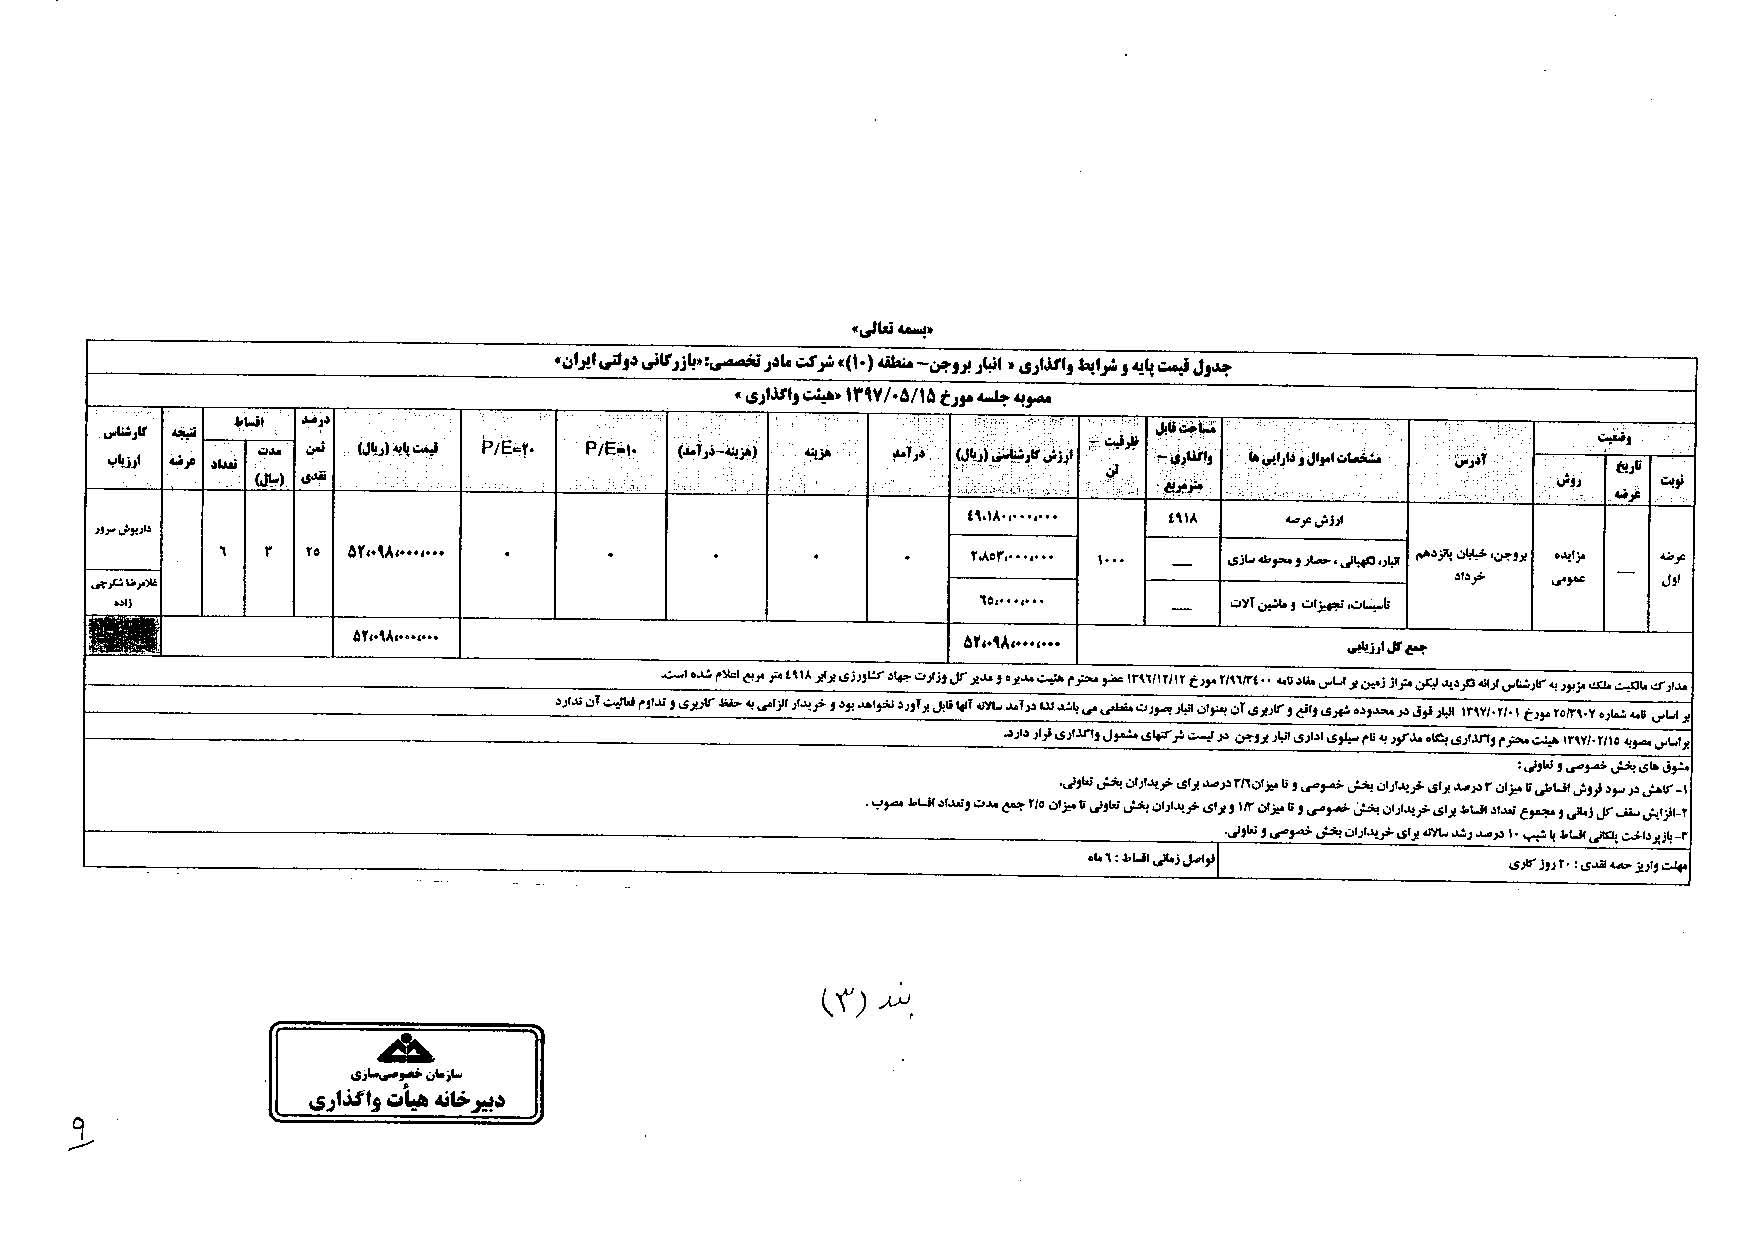 «بسمه تعالی»
جدول قیمت پایه و شرایط واگذاری « انبار بروجن– منطقه (۱۰)» شرکت مادر تخصصی: «بازرگانی دولتی ایران»
مصوبه جلسه مورخ ۱۳۹۷/۰۵/۱۵ «هیئت واگذاری »
وضعیت
نوبت
تاریخ عرضه
روش
آدرس
مشخصات اموال و دارایی ها
مساحت قابل واگذاری – مترمربع
ظرفیت – تن
ارزش کارشناسی (ریال)
درآمد
هزینه
(هزینه-درآمد)
P/E=۱۰
P/E=۲۰
قیمت پایه (ریال)
درصد ثمن نقدی
اقساط
مدت (سال)
تعداد
نتیجه عرضه
کارشناس ارزیاب
عرضه اول
—
مزایده عمومی
بروجن، خیابان پانزدهم خرداد
ارزش عرصه
۴۹۱۸
۴۹،۱۸۰،۰۰۰،۰۰۰
انبار، نگهبانی ، حصار و محوطه سازی
—
۲،۸۵۳،۰۰۰،۰۰۰
تأسیسات، تجهیزات و ماشین آلات
—
۶۵،۰۰۰،۰۰۰
۱۰۰۰
۰
۰
۰
۰
۰
۵۲،۰۹۸،۰۰۰،۰۰۰
۲۵
۳
۶
داریوش سرور
غلامرضا شکرچی زاده
جمع کل ارزیابی
۵۲،۰۹۸،۰۰۰،۰۰۰
۵۲،۰۹۸،۰۰۰،۰۰۰
مدارک مالکیت ملک مزبور به کارشناس ارائه نگردید لیکن متراژ زمین بر اساس مفاد نامه ۲/۹۶/۳۴۰۰ مورخ ۱۳۹۶/۱۲/۱۲ عضو محترم هئیت مدیره و مدیر کل وزارت جهاد کشاورزی برابر ۴۹۱۸ متر مربع اعلام شده است.
بر اساس نامه شماره ۲۵/۳۹۰۷ مورخ ۱۳۹۷/۰۲/۰۱ انبار فوق در محدوده شهری واقع و کاربری آن بعنوان انبار بصورت مقطعی می باشد لذا درآمد سالانه آنها قابل برآورد نخواهد بود و خریدار الزامی به حفظ کاربری و تداوم فعالیت آن ندارد
براساس مصوبه ۱۳۹۷/۰۲/۱۵ هیئت محترم واگذاری بنگاه مذکور به نام سیلوی اداری انبار بروجن در لیست شرکتهای مشمول واگذاری قرار دارد.
مشوق های بخش خصوصی و تعاونی :
۱- کاهش در سود فروش اقساطی تا میزان ۳ درصد برای خریداران بخش خصوصی و تا میزان ۳/۶ درصد برای خریداران بخش تعاونی.
۲-افزایش سقف کل زمانی و مجموع تعداد اقساط برای خریداران بخش خصوصی و تا میزان ۱/۳ و برای خریداران بخش تعاونی تا میزان ۲/۵ جمع مدت وتعداد اقساط مصوب .
۳- بازپرداخت پلکانی اقساط با شیب ۱۰ درصد رشد سالانه برای خریداران بخش خصوصی و تعاونی.
مهلت واریز حصه نقدی : ۲۰ روز کاری
فواصل زمانی اقساط : ۶ ماه
بند (۳)
سازمان خصوصی‌سازی
دبیرخانه هیأت واگذاری
۹